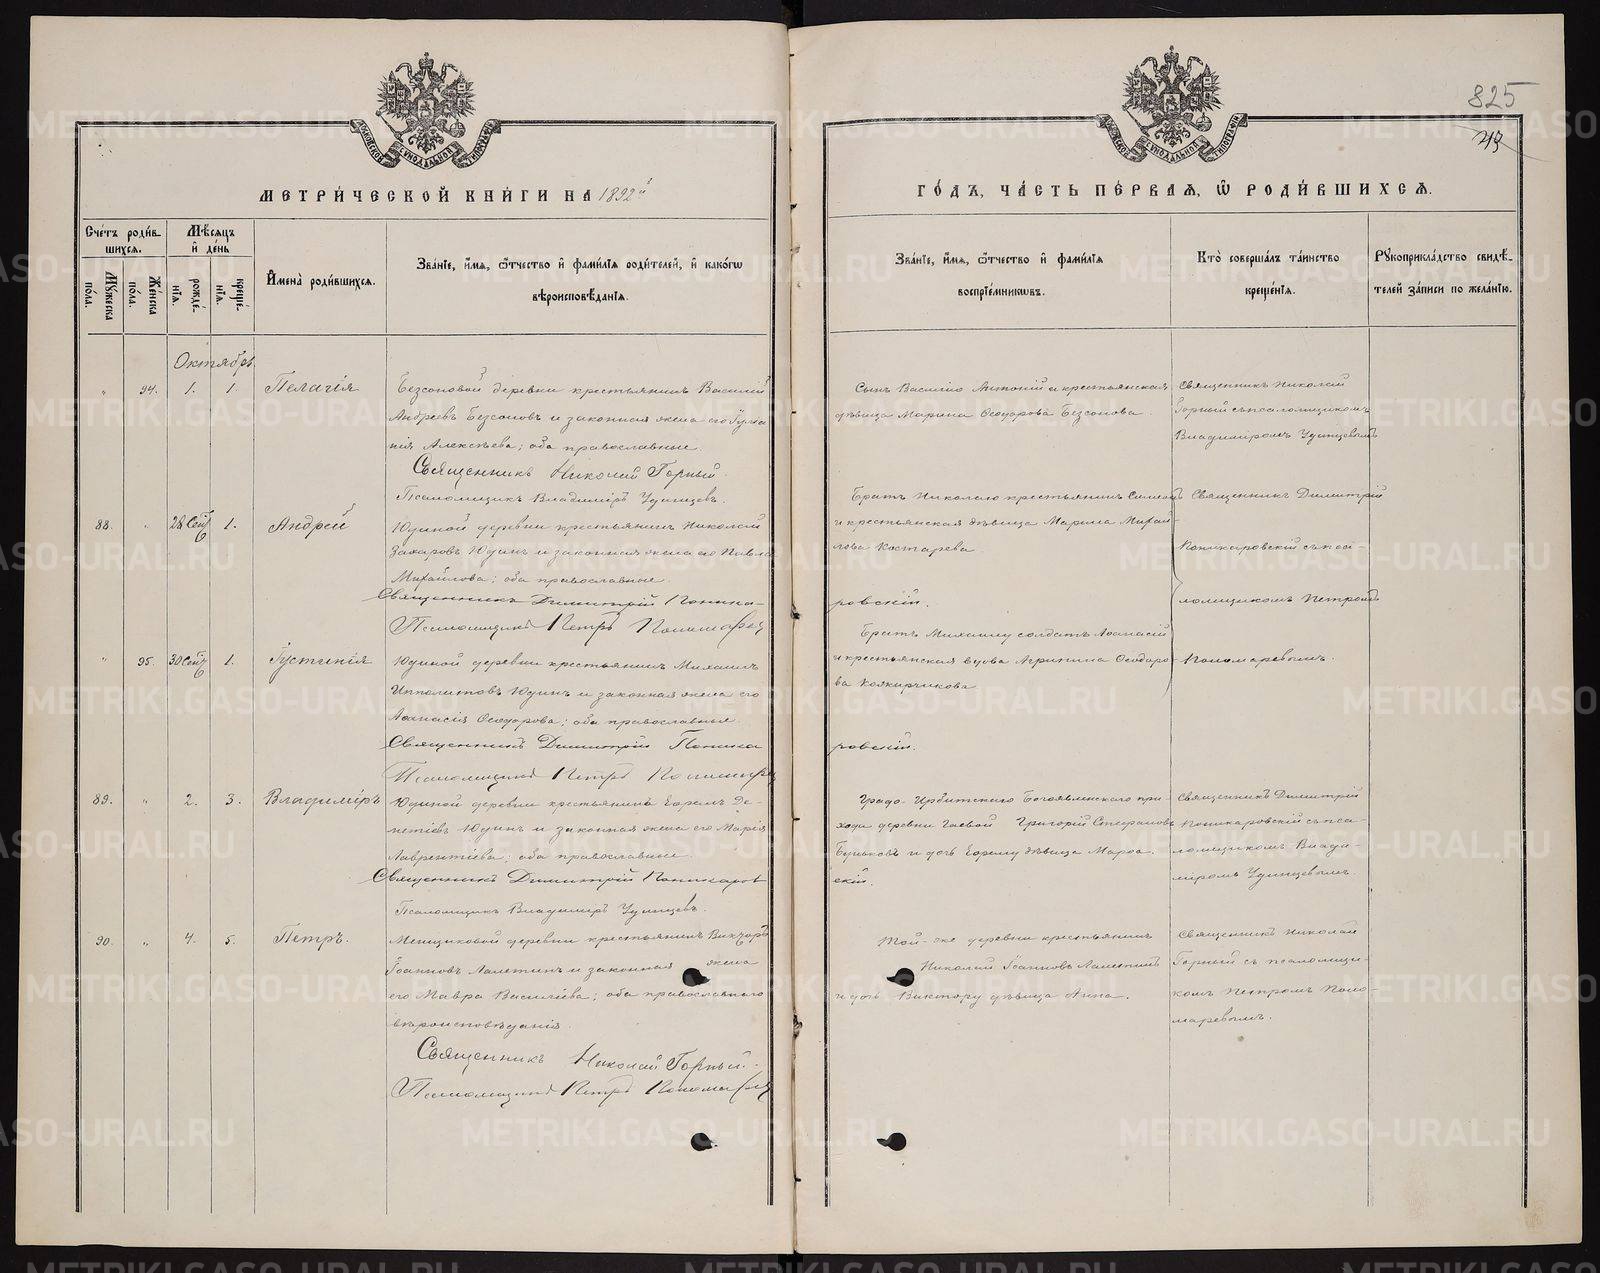 825
43
МОСКОВСКОЙ СѴНОДАЛЬНОЙ ТИПОГРАФІИ
МОСКОВСКОЙ СѴНОДАЛЬНОЙ ТИПОГРАФІИ
МЕТРИ́ЧЕСКОЙ КНИ́ГИ НА 1892й
ГО́ДЪ, ЧА́СТЬ ПЕ́РВАЯ, Ѡ РОДИ́ВШИХСЯ.
Сче́тъ роди́в-
шихся.
Мѣ́сяцъ
и҆ де́нь
Мꙋжеска по́ла.
Же́нска по́ла.
рожде́-
нїя.
креще́-
нїя.
И҆мена̀ роди́вшихся.
Зва́нїе, и҆́мя, ѻ҆́тчество и҆ фами́лїя родителей, и҆ како́гѡ
вѣроисповѣ́данїя.
Зва́нїе, и҆́мя, ѻ҆́тчество и҆ фами́лїя
воспрїе́мникѡвъ.
Кто̀ соверша́лъ та́инство
креще́нїя.
Рꙋкоприкла́дство свидѣ́-
телей за́писи по жела́нїю.
Октябрь.
" 94. 1. 1. Пелагія
Безсоновой деревни крестьянинъ Василій
Андреевъ Безсоновъ и законная жена его
нія Алексѣева; оба православные.
Священникъ Николай Горный.
Псаломщикъ Владиміръ Удинцевъ.
Сынъ Василію Антоній и крестьянская
дѣвица Марина Ѳеодорова Безсонова.
Священникъ Николай
Горный съ псаломщикомъ
Владиміромъ Удинцевымъ
88. " 28 Сент. 1. Андрей
Юдиной деревни крестьянинъ Николай
Захаровъ Юдинъ и законная жена его Павла
Михайлова; оба православные.
Священникъ Димитрій Поника-
Псаломщикъ Петръ Пономаревъ
Братъ Николаю крестьянинъ Симеонъ
и крестьянская дѣвица Марина Михай-
лова Костарева
ровскій.
Священникъ Димитрій
Поникаровскій съ пса-
ломщикомъ Петромъ
Пономаревымъ.
" 95. 30 Сент. 1. Іустинія
Юдиной деревни крестьянинъ Михаилъ
Ипполитовъ Юдинъ и законная жена его
Аѳанасія Ѳеодорова; оба православные.
Священникъ Димитрій Поника
Псаломщикъ Петръ Пономаревъ
Братъ Михаилу солдатъ Аѳанасій
и крестьянская вдова Агрипина Ѳеодоро-
ва
ровскій.
89. " 2. 3. Владиміръ
Юдиной деревни крестьянинъ Ефремъ Де-
ментіевъ Юдинъ и законная жена его Марія
Лаврентіева; оба православные.
Священникъ Димитрій Поникаров
Псаломщикъ Владиміръ Удинцевъ.
Градо-Ирбитскаго Богоявленскаго при-
хода деревни Гаевой Григорій Стефановъ
и дочь Ефрему дѣвица Марѳа.
скій.
Священникъ Димитрій
Поникаровскій съ пса-
ломщикомъ Влади-
міромъ Удинцевымъ.
90. " 4. 5. Петръ.
Меньщиковой деревни крестьянинъ Викторъ
Іоанновъ Лалетинъ и законная жена
его Мавра Василіева; оба православнаго
вѣроисповѣданія.
Священникъ Николай Горный.
Псаломщикъ Петръ Пономаревъ
Той-же деревни крестьянинъ
Николай Іоанновъ Лалетинъ
и дочь Виктору дѣвица Анна.
Священникъ Николай
Горный съ псаломщи-
комъ Петромъ Поно-
маревымъ.